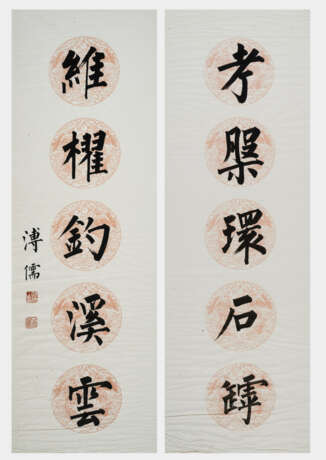 考槃環石罅
維櫂釣溪雲
溥儒